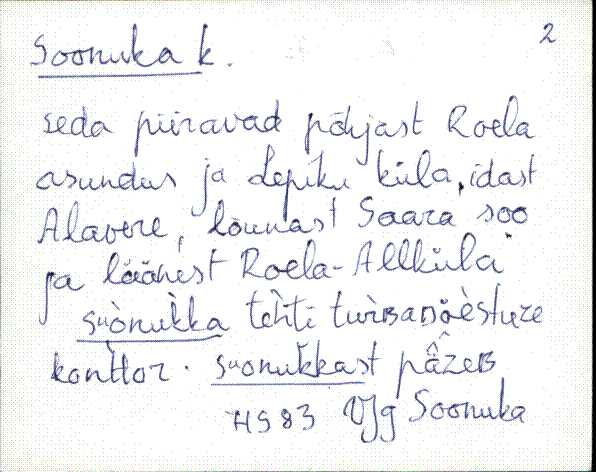 2
Soonuka k.
seda piiravad põhjast Roela
asundus ja Lepiku küla, idast
Alavere, lõunast Saara soo
ja läänest Roela-Allküla
suònukka tehti
konttor. suonukkast
HS 83 VJg Soonuka